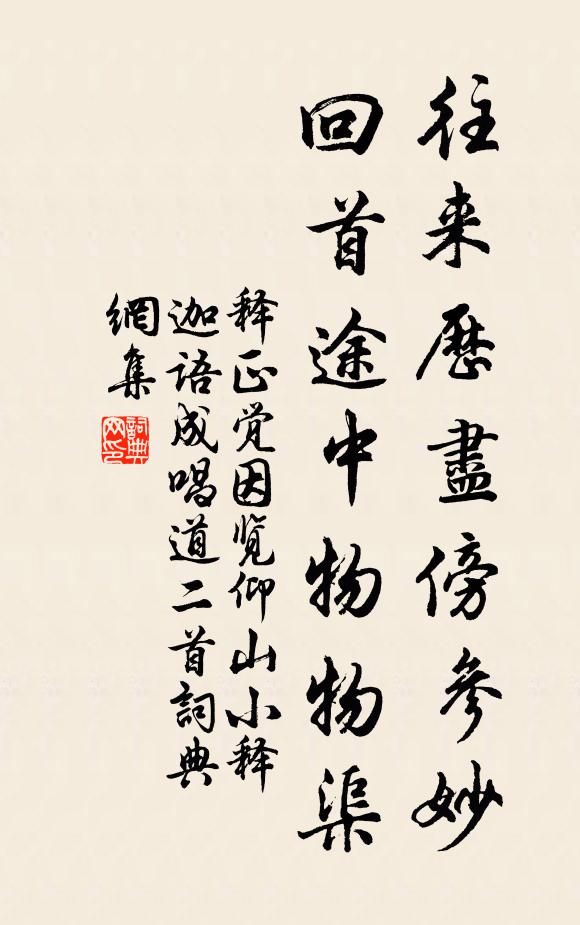 往来歷盡傍參妙
回首途中物物渠
释正党因览仰山小释
迦语成唱道二首詞典
網集
詞典网印